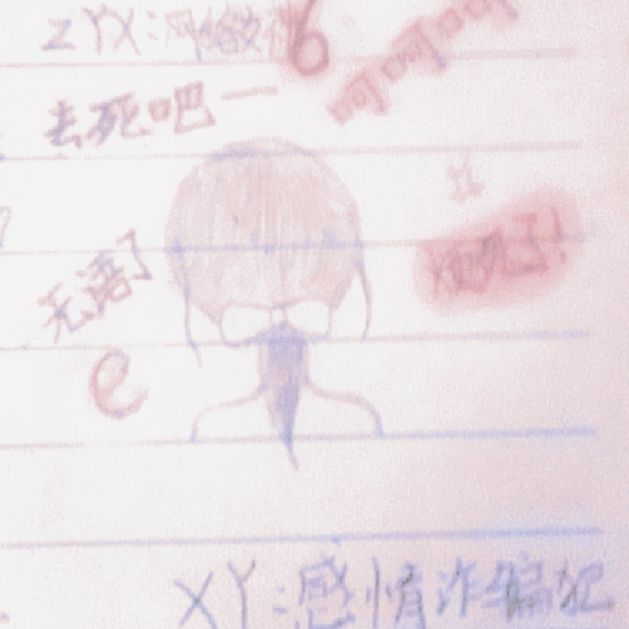 ZYX:网络教 6
呵呵呵呵
去死吧一
烦死了!
无语了
e
XY:感情诈骗犯